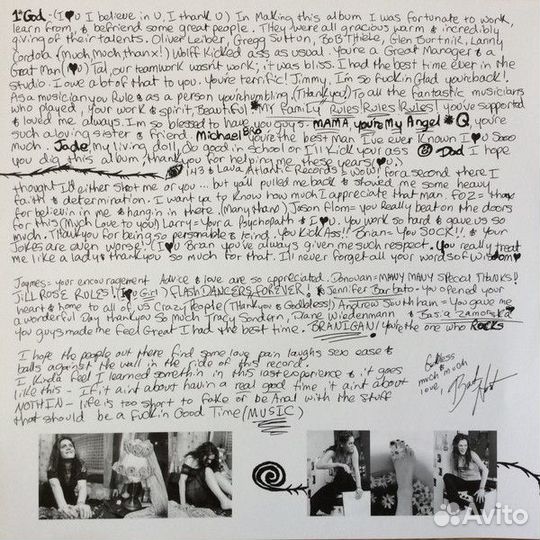 1st God - (I ♥ U I believe in U, I thank U) In Making this album I was fortunate to work,
learn from, & befriend some great people. They were all gracious warm & incredibly
giving of their talents. Oliver Leiber, Gregg Sutton, Bob Thiele, Glen Burtnik, Lanny
Cordola (Much, Much, thanx!) Wolff Kicked ass as usual. You're a Great Manager & a
Great Man (♥ U) Tal, our teamwork wasn't work; it was bliss. I had the best time ever in the
studio. I owe a lot of that to you. You're terrific! Jimmy, I'm so fuckin Glad your back!.
As a musician you Rule & as a person you're humbling (Thank you!) To all the fantastic musicians
who played, your work & spirit, Beautiful * My Family Rules! Rules! Rules! you've supported
& loved me always. I'm so blessed to have you guys. MAMA, you're My Angel * Q you're
such a loving sister & friend. Michael Bro you're the best Man I've ever known I ♥ U Sooo
much. Jade, my living doll, do good in school or I'll kick your ass Dad I hope
you dig this album, thank you for helping me these years (♥ U.)
143 & Lava Atlantic Records! Wow! for a second there I
thought I'd either shoot me or you... but ya'll pulled me back & showed me some heavy
faith & determination. I want ya to know how much I appreciate that man. Foz = thanx
for believin in me & hangin in there. (Many thanx) Jason Flom = you Really beat on the doors
for this (Much Love to you) Larry = Your a Psychopath & I ♥ U. You work so hard & gave us so
much. Thank you for being so personable & kind. You Kick Ass!! Brian = You SUCK!! & your
Jokes are even worse! (I ♥ U Brian you've always given me such respect. You really treat
me like a lady & thank you so much for that. I'll never forget all your words of Wisdom
Jaymes = your encouragement Advice & love are so appreciated. Donovan = MANY MANY special Thanks!
JILL ROSE RULES! (I ♥ U Girl) FLASHDANCERS FOREVER! & Jennifer Barbato = You opened your
heart & home to all of us Crazy People (Thank you & Godbless!) Andrew Southam = You gave me
a wonderful Day thank you so much Tracy Sondern, Dane Wiedenmann & Basia Zamorska
you guys made me feel Great I had the best time. BRANIGAN! You're the one who ROCKS
I hope the people out there find some love pain laughs sex ease &
balls against the wall in the ride of this record.
I Kinda feel I learned something in this last experience & it goes
like this - If it aint about havin a real good time, it aint about
NOTHIN - life is too short to fake or be Anal with the stuff
that should be a fuckin Good Time (MUSIC)
Godbless
& much much
love,
Beth Hart
Avito